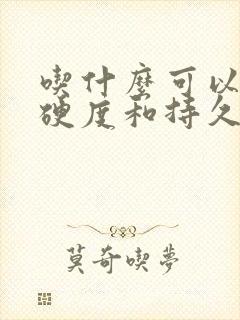 喫什麼可以
硬度和持久
莫奇喫夢